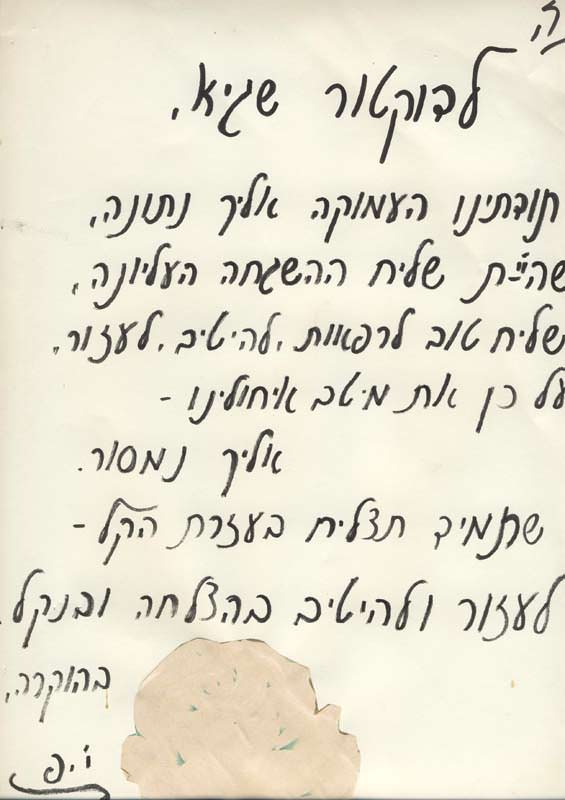 ה
לדוקטור שגיא,
תודתינו העמוקה אליך נתונה,
שהיית שליח ההשגחה העליונה,
שליח טוב לרפאות, להיטיב, לעזור,
על כן את מיטב איחולינו -
אליך נמסור.
שתמיד תצליח בעזרת הקל -
לעזור ולהיטיב בהצלחה ובנקל.
בהוקרה,
י.פ